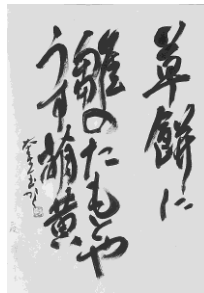 草餅に
雛のたもとや
うす萌黄